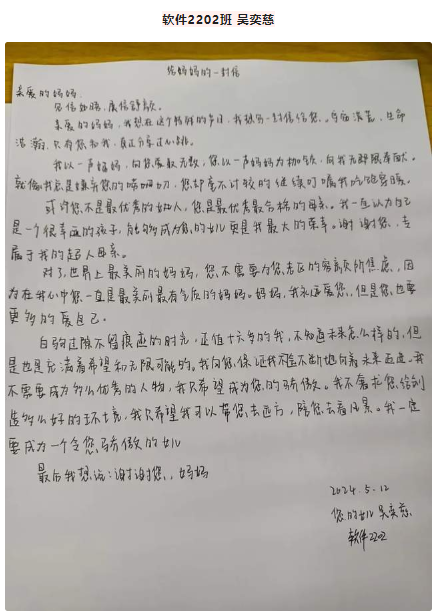 软件2202班 吴奕慈
给妈妈的一封信
亲爱的妈妈,
见信如晤,展信舒颜。
亲爱的妈妈,我想在这个特殊的节日,我想写一封信给您。宇宙洪荒,生命
浩瀚,只有您和我,真正分享过心跳。
我以一声妈妈,向您索取无数,您以一声妈妈为初,向我无
就像我总是嫌弃您的唠叨,您却毫不计较的继续叮嘱我吃饱穿暖。
或许您不是最优秀的女人,您是最优秀最合格的母亲。我一直认为自己
是一个很幸运的孩子,能够成为您的女儿更是我最大的荣幸。谢谢您,专
属于我的超人母亲。
对了,世界上最美丽的妈妈,您不需要为您老去的容颜所焦虑,因
为在我心中您一直是最美丽最有气质的妈妈。妈妈,我永远爱您,但是您也要
更多的爱自己。
白驹过隙不留痕迹的时光,正值十六岁的我,不知道未来怎么样的,但
是也是充满着希望和无限可能的。我向您保证我不断地向着未来迈进。我
不需要成为多么优秀的人物,我只希望成为您的骄傲。我不奢求您给创
造多么好的环境,我只希望我可以带您去远方,陪您去看风景。我一定
要成为一个令您骄傲的女儿
最后我想说:谢谢您,妈妈
2024.5.12
您的女儿 吴奕慈
软件2202